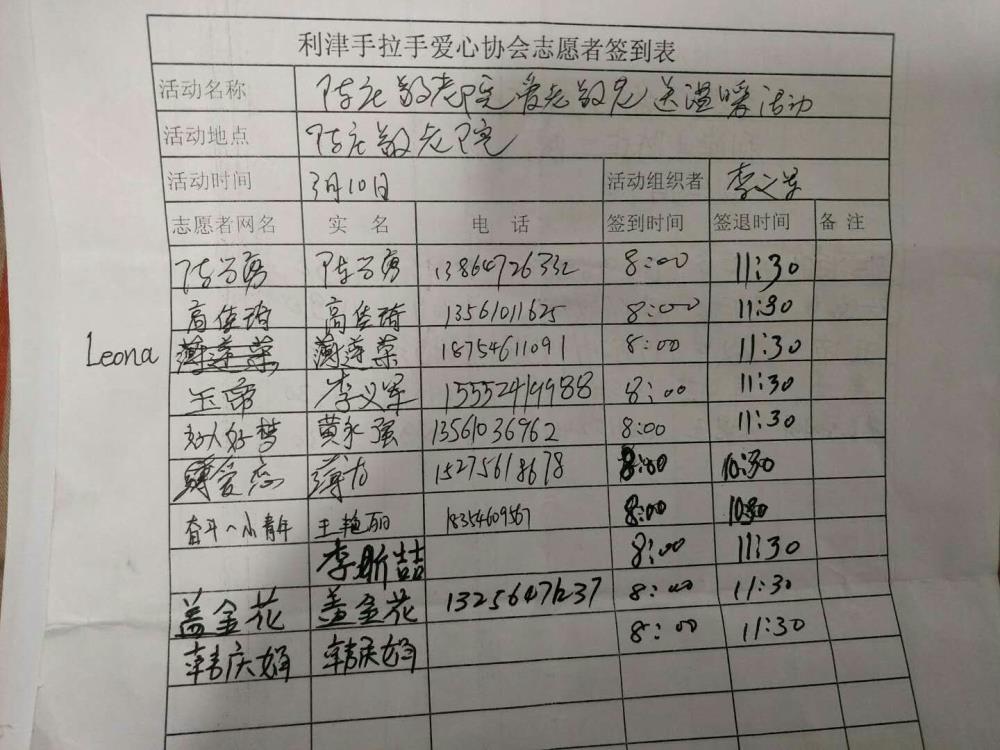 利津手拉手爱心协会志愿者签到表
活动名称 陈庄敬老院爱老敬老送温暖活动
活动地点 陈庄敬老院
活动时间 3月10日 活动组织者 李义军
志愿者网名 实 名 电 话 签到时间 签退时间 备 注
陈 勇 陈 勇 13864726332 8:00 11:30
高佳琦 高佳琦 13561011625 8:00 11:30
Leona 薄莲荣 薄莲荣 18754611091 8:00 11:30
玉帝 李义军 15552419988 8:00 11:30
好人好梦 黄永强 13561036962 8:00 11:30
爱恋 薄 15275618678 8:00 10:30
奋斗~小青年 王艳丽 18354609567 8:00 10:30
李昕喆 8:00 11:30
盖金花 盖金花 13256471237 8:00 11:30
韩庆娟 韩庆娟 8:00 11:30